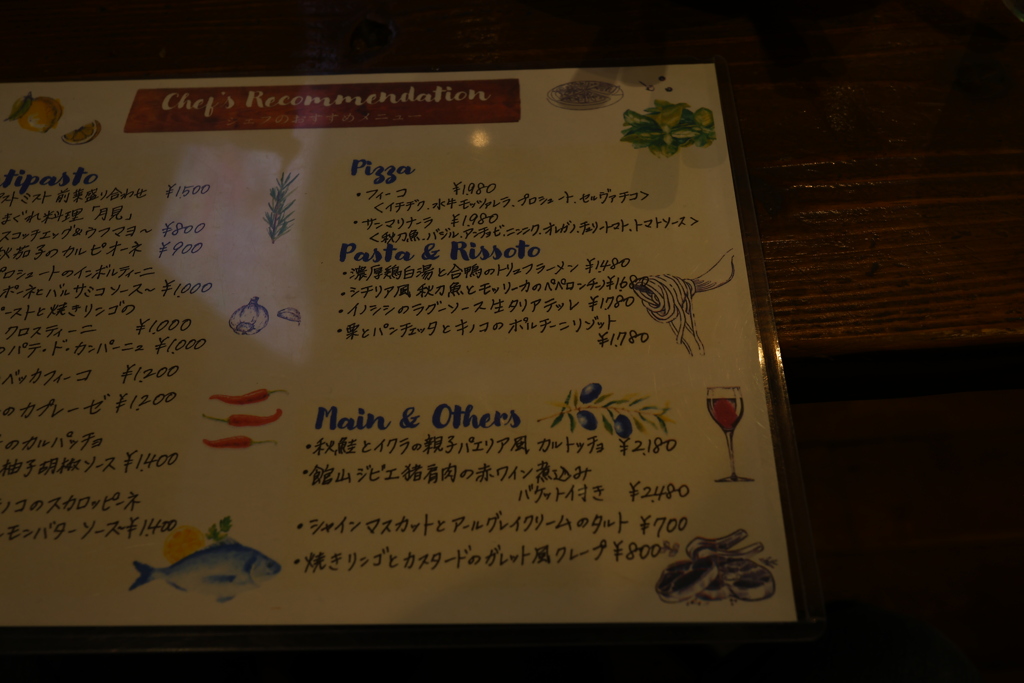 Chef's Recommendation
シェフのおすすめメニュー
tipasto
ミスト 前菜盛り合わせ ¥1500
まぐれ料理「月見」
スコッチエッグ&ウフマヨ〜 ¥800
秋茄子のカルピオーネ ¥900
プロシュートのインボルティーニ
ポーネとバルサミコソース〜 ¥1,000
ペーストと焼きリンゴの
クロスティーニ ¥1,000
パテ・ド・カンパーニュ ¥1,000
ベッカフィーコ ¥1,200
のカプレーゼ ¥1,200
のカルパッチョ
柚子胡椒ソース ¥1,400
ノコのスカロッピーネ
レモンバターソース〜 ¥1,400
Pizza
・フィーコ ¥1980
<イチヂク、水牛モッツァレラ、プロシュート、セルヴァチコ>
・サンマリナーラ ¥1,980
<秋刀魚、バジル、アンチョビ、ニンニク、オレガノ、チェリートマト、トマトソース>
Pasta & Rissoto
・濃厚鶏白湯と合鴨のトリュフラーメン ¥1480
・シチリア風 秋刀魚とモッリーカのペペロンチーノ ¥1680
・イノシシのラグーソース 生タリアテッレ ¥1780
・栗とパンチェッタとキノコのポルチーニリゾット
¥1,780
Main & Others
・秋鮭とイクラの親子パエリア風 カルトッチョ ¥2,180
・館山ジビエ猪肩肉の赤ワイン煮込み
バケット付き ¥2480
・シャインマスカットとアールグレイクリームのタルト ¥700
・焼きリンゴとカスタードのガレット風クレープ ¥800